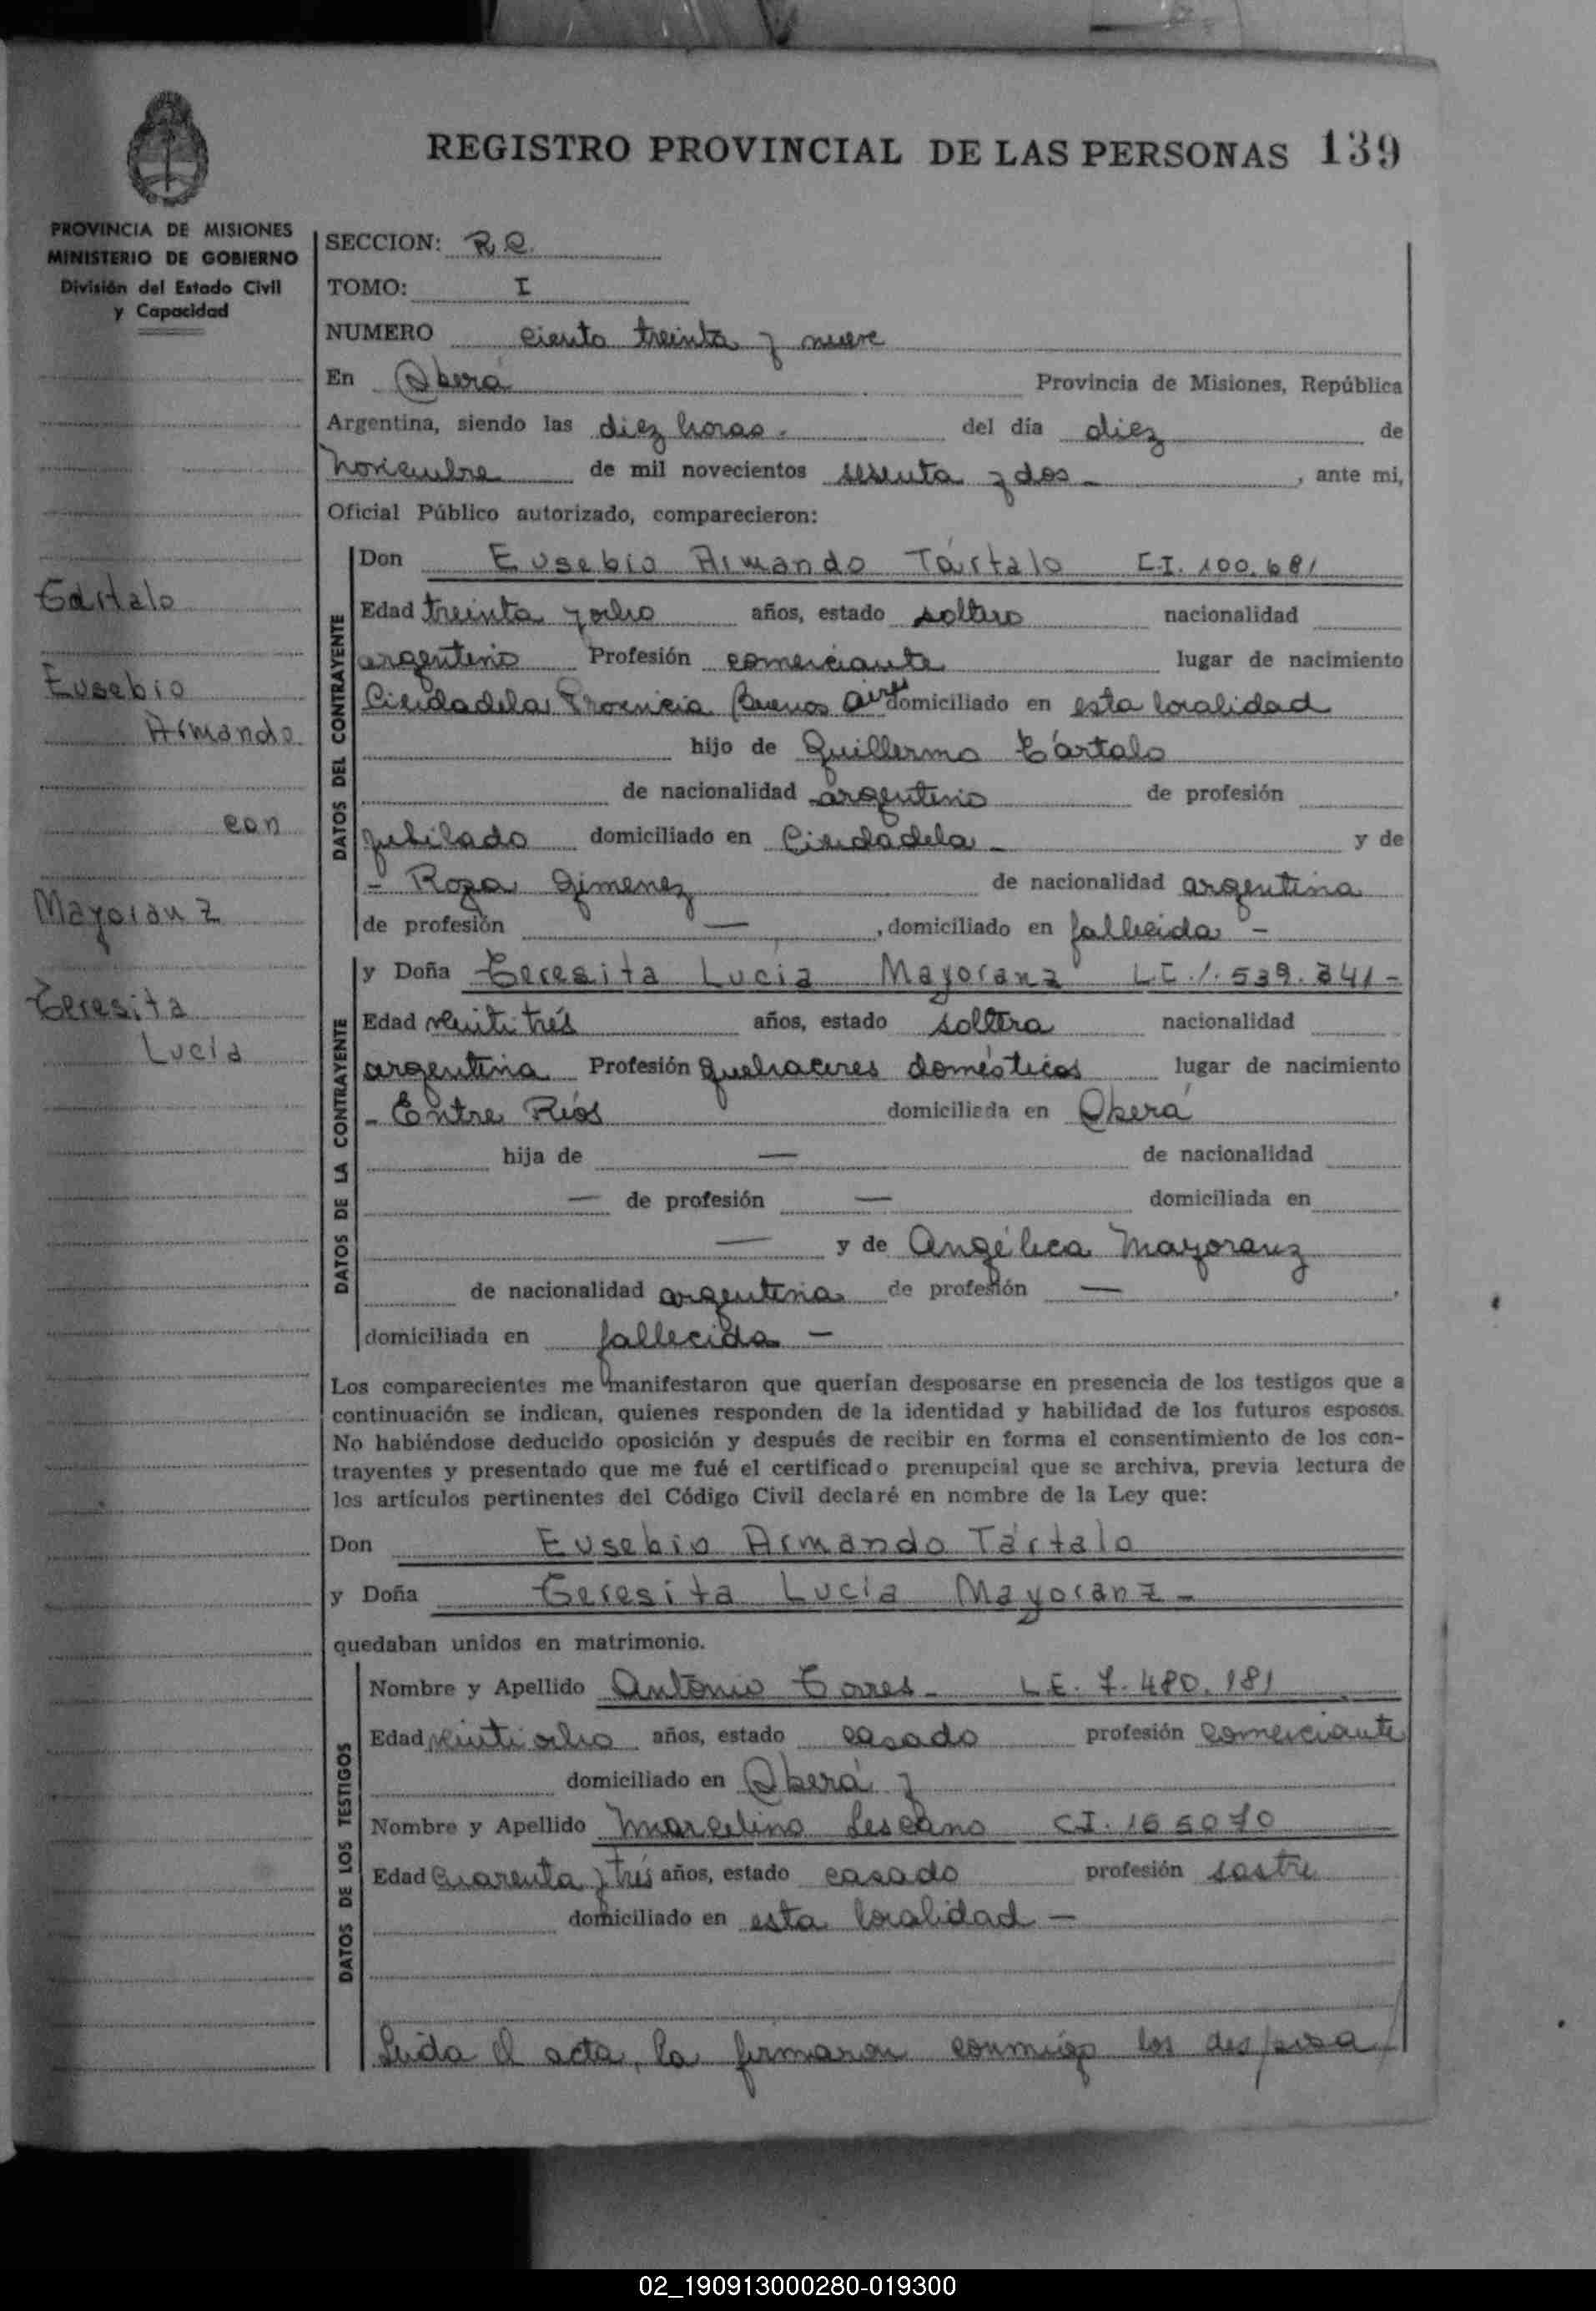 REGISTRO PROVINCIAL DE LAS PERSONAS 139
PROVINCIA DE MISIONES
MINISTERIO DE GOBIERNO
División del Estado Civil
y Capacidad
Tártalo
Eusebio
Armando
con
Mayoranz
Teresita
Lucía
SECCION: R.C.
TOMO: I
NUMERO ciento treinta y nueve
En Oberá Provincia de Misiones, República
Argentina, siendo las diez horas. del día diez de
noviembre de mil novecientos sesenta y dos - , ante mi,
Oficial Público autorizado, comparecieron:
DATOS DEL CONTRAYENTE
Don Eusebio Armando Tártalo C.I. 100.681
Edad treinta y ocho años, estado soltero nacionalidad
argentino Profesión comerciante lugar de nacimiento
Ciudadela Provincia Buenos Aires domiciliado en esta localidad
hijo de Guillermo Tártalo
de nacionalidad argentino de profesión
jubilado domiciliado en Ciudadela - y de
- Roza Gimenez de nacionalidad argentina
de profesión — , domiciliado en fallecida -
DATOS DE LA CONTRAYENTE
y Doña Teresita Lucía Mayoranz L.C. 1.539.341-
Edad veintitrés años, estado soltera nacionalidad
argentina Profesión quehaceres domésticos lugar de nacimiento
- Entre Ríos domiciliada en Oberá
hija de — de nacionalidad
— de profesión — domiciliada en
— y de Angélica Mayoranz
de nacionalidad argentina de profesión — ,
domiciliada en fallecida -
Los comparecientes me manifestaron que querían desposarse en presencia de los testigos que a
continuación se indican, quienes responden de la identidad y habilidad de los futuros esposos.
No habiéndose deducido oposición y después de recibir en forma el consentimiento de los con-
trayentes y presentado que me fué el certificado prenupcial que se archiva, previa lectura de
los artículos pertinentes del Código Civil declaré en nombre de la Ley que:
Don Eusebio Armando Tártalo
y Doña Teresita Lucía Mayoranz -
quedaban unidos en matrimonio.
DATOS DE LOS TESTIGOS
Nombre y Apellido Antonio Torres - L.E. 7.480.181
Edad veintiocho años, estado casado profesión comerciante
domiciliado en Oberá y
Nombre y Apellido Marcelino Lescano C.I. 165070
Edad cuarenta y tres años, estado casado profesión sastre
domiciliado en esta localidad -
Leida el acta, la firmaron conmigo los desposa
02_190913000280-019300